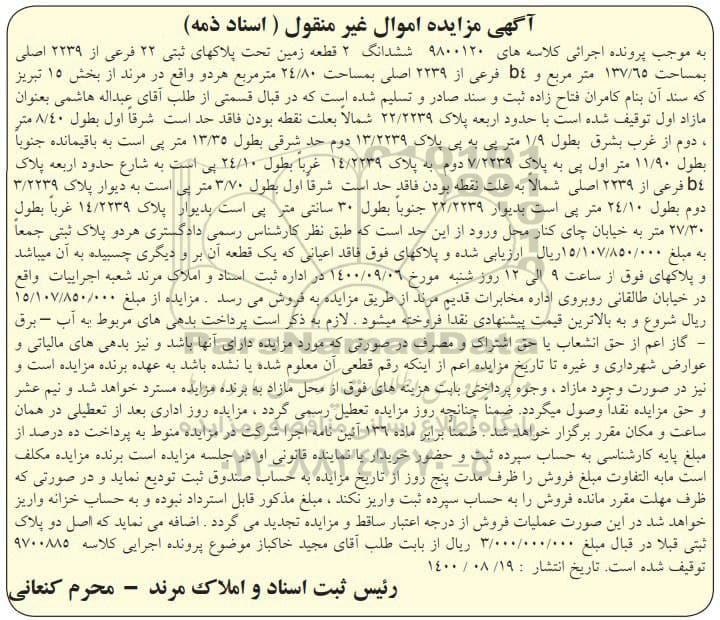 آگهی مزایده اموال غیر منقول ( اسناد ذمه)
به موجب پرونده اجرائی کلاسه های ۹۸۰۰۱۲۰ ششدانگ ۲ قطعه زمین تحت پلاکهای ثبتی ۲۲ فرعی از ۲۲۳۹ اصلی
بمساحت ۱۳۷/۶۵ متر مربع و b۴ فرعی از ۲۲۳۹ اصلی بمساحت ۲۴/۸۰ مترمربع هردو واقع در مرند از بخش ۱۵ تبریز
که سند آن بنام کامران فتاح زاده ثبت و سند صادر و تسلیم شده است که در قبال قسمتی از طلب آقای عبداله هاشمی بعنوان
مازاد اول توقیف شده است با حدود اربعه پلاک ۲۲/۲۲۳۹ شمالاً بعلت نقطه بودن فاقد حد است شرقاً اول بطول ۸/۴۰ متر
، دوم از غرب بشرق بطول ۱/۹ متر پی به پی پلاک ۱۳/۲۲۳۹ دوم حد شرقی بطول ۱۳/۳۵ متر پی است به باقیمانده جنوباً
بطول ۱۱/۹۰ متر اول پی به پلاک ۷/۲۲۳۹ دوم به پلاک ۱۴/۲۲۳۹ غرباً بطول ۲۴/۱۰ پی است به شارع حدود اربعه پلاک
b۴ فرعی از ۲۲۳۹ اصلی شمالاً به علت نقطه بودن فاقد حد است شرقاً اول بطول ۳/۷۰ متر پی است به دیوار پلاک ۳/۲۲۳۹
دوم بطول ۲۴/۱۰ متر پی است بدیوار ۲۲/۲۲۳۹ جنوباً بطول ۳۰ سانتی متر پی است بدیوار پلاک ۱۴/۲۲۳۹ غرباً بطول
۲۷/۳۰ متر به خیابان چای کنار محل ورود از این حد است که طبق نظر کارشناس رسمی دادگستری هردو پلاک ثبتی جمعاً
به مبلغ ۱۵/۱۰۷/۸۵۰/۰۰۰ریال ارزیابی شده و پلاکهای فوق فاقد اعیانی که یک قطعه آن بر و دیگری چسبیده به آن میباشد
و پلاکهای فوق از ساعت ۹ الی ۱۲ روز شنبه مورخ ۱۴۰۰/۰۹/۰۶ در اداره ثبت اسناد و املاک مرند شعبه اجراییات واقع
در خیابان طالقانی روبروی اداره مخابرات قدیم مرند از طریق مزایده به فروش می رسد . مزایده از مبلغ ۱۵/۱۰۷/۸۵۰/۰۰۰
ریال شروع و به بالاترین قیمت پیشنهادی نقداً فروخته میشود . لازم به ذکر است پرداخت بدهی های مربوط به آب – برق
- گاز اعم از حق انشعاب یا حق اشتراک و مصرف در صورتی که مورد مزایده دارای آنها باشد و نیز بدهی های مالیاتی و
عوارض شهرداری و غیره تا تاریخ مزایده اعم از اینکه رقم قطعی آن معلوم شده یا نشده باشد به عهده برنده مزایده است و
نیز در صورت وجود مازاد ، وجوه پرداختی بابت هزینه های فوق از محل مازاد به برنده مزایده مسترد خواهد شد و نیم عشر
و حق مزایده نقداً وصول میگردد. ضمناً چنانچه روز مزایده تعطیل رسمی گردد ، مزایده روز اداری بعد از تعطیلی در همان
ساعت و مکان مقرر برگزار خواهد شد . ضمناً برابر ماده ۱۳۶ آئین نامه اجرا شرکت در مزایده منوط به پرداخت ده درصد از
مبلغ پایه کارشناسی به حساب سپرده ثبت و حضور خریدار یا نماینده قانونی او در جلسه مزایده است برنده مزایده مکلف
است مابه التفاوت مبلغ فروش را ظرف مدت پنج روز از تاریخ مزایده به حساب صندوق ثبت تودیع نماید و در صورتی که
ظرف مهلت مقرر مانده فروش را به حساب سپرده ثبت واریز نکند ، مبلغ مذکور قابل استرداد نبوده و به حساب خزانه واریز
خواهد شد در این صورت عملیات فروش از درجه اعتبار ساقط و مزایده تجدید می گردد . اضافه می نماید که اصل دو پلاک
ثبتی قبلا در قبال مبلغ ۳/۰۰۰/۰۰۰/۰۰۰ ریال از بابت طلب آقای مجید خاکباز موضوع پرونده اجرایی کلاسه ۹۷۰۰۸۸۵
توقیف شده است. تاریخ انتشار : ۱۹/ ۰۸ / ۱۴۰۰
رئیس ثبت اسناد و املاک مرند – محرم کنعانی
ParsNamadData
پایگاه اطلاع رسانی مناقصه و مزایده
۰۲۱-۸۸۳۴۹۶۷۰-۵